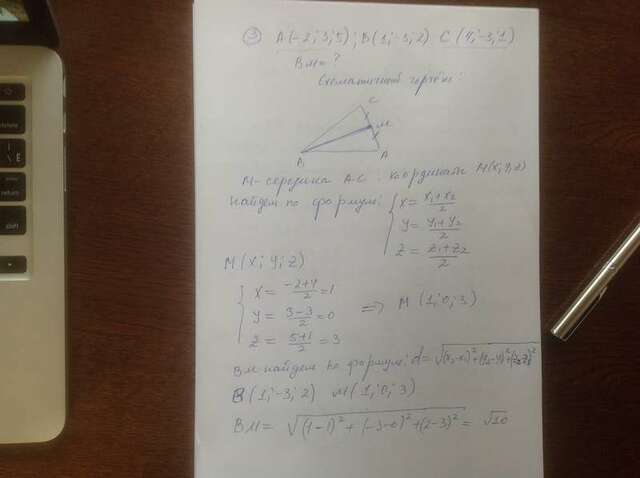 ③ A(-2; 3; 5); B(1; -3; 2) C(4; -3; 1)
BM = ?
Схематичный чертёж:
C
M
A
A
M - середина AC: координаты M(x; y; z)
Найдем по формуле: { x = (x₁+x₂)/2
y = (y₁+y₂)/2
z = (z₁+z₂)/2
M(x; y; z)
{ x = (-2+4)/2 = 1
y = (3-3)/2 = 0 => M(1; 0; 3)
z = (5+1)/2 = 3
BM найдем по формуле: d = √((x₂-x₁)²+(y₂-y₁)²+(z₂-z₁)²)
B(1; -3; 2) M(1; 0; 3)
BM = √((1-1)²+(-3-0)²+(2-3)²) = √10
return
shift